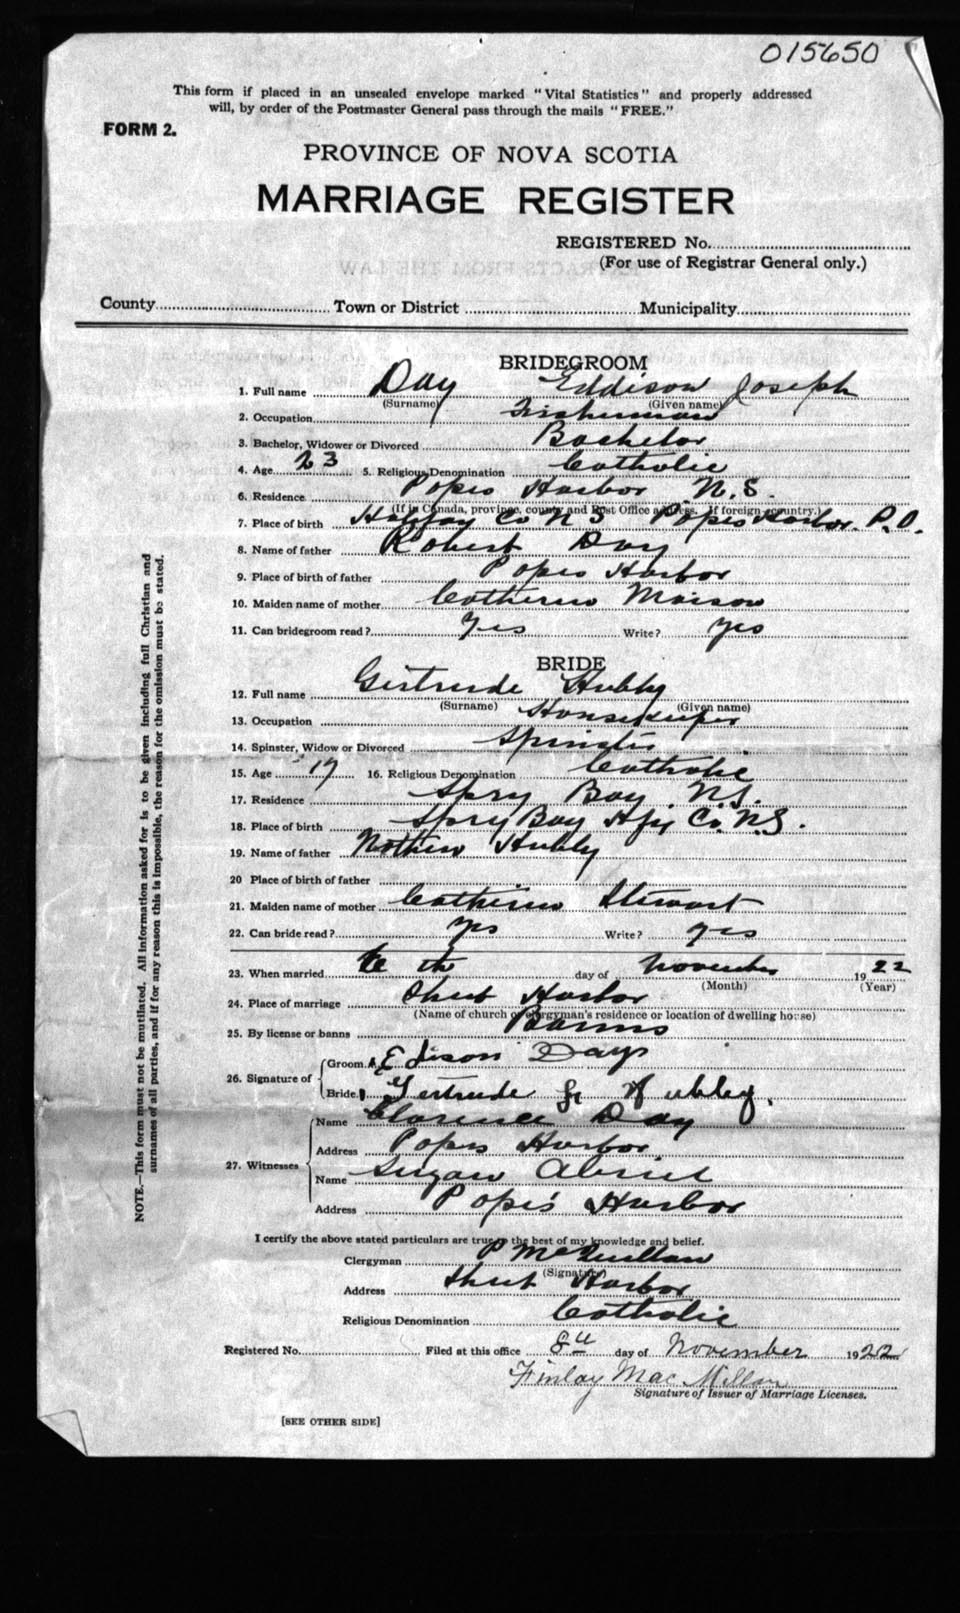 015650
This form if placed in an unsealed envelope marked "Vital Statistics" and properly addressed
will, by order of the Postmaster General pass through the mails "FREE."
FORM 2.
PROVINCE OF NOVA SCOTIA
MARRIAGE REGISTER
REGISTERED No.
(For use of Registrar General only.)
County Town or District Municipality
BRIDEGROOM
1. Full name Day Eddison Joseph
(Surname) (Given name)
2. Occupation Fisherman
3. Bachelor, Widower or Divorced Bachelor
4. Age 23 5. Religious Denomination Catholic
6. Residence Popes Harbor N.S.
(If in Canada, province, county and Post Office address. If foreign country.)
7. Place of birth Halifax Co N S Popes Harbor P.O.
8. Name of father Robert Day
9. Place of birth of father Popes Harbor
10. Maiden name of mother Catherine
11. Can bridegroom read? Yes Write? yes
BRIDE
12. Full name Gertrude Hubly
(Surname) (Given name)
13. Occupation Housekeeper
14. Spinster, Widow or Divorced Spinster
15. Age 16. Religious Denomination Catholic
17. Residence Spry Bay N.S.
18. Place of birth Spry Bay Hfx Co. N.S.
19. Name of father Hubly
20 Place of birth of father
21. Maiden name of mother Catherine Stewart
22. Can bride read? yes Write? yes
23. When married th day of November 1922
(Month) (Year)
24. Place of marriage Sheet Harbor
(Name of church or clergyman's residence or location of dwelling house)
25. By license or banns Banns
26. Signature of Groom Edison Day
Bride Gertrude Hubley.
27. Witnesses Name Clarence Day
Address Popes Harbor
Name Abriel
Address Pope's Harbor
I certify the above stated particulars are true to the best of my knowledge and belief.
Clergyman P McQuillan
(Signature)
Address Sheet Harbor
Religious Denomination Catholic
Registered No. Filed at this office 8th day of November 1922
Finlay Mac Millan
Signature of Issuer of Marriage Licenses.
[SEE OTHER SIDE]
NOTE.—This form must not be mutilated. All information asked for is to be given including full Christian and
surnames of all parties, and if for any reason this is impossible, the reason for the omission must be stated.